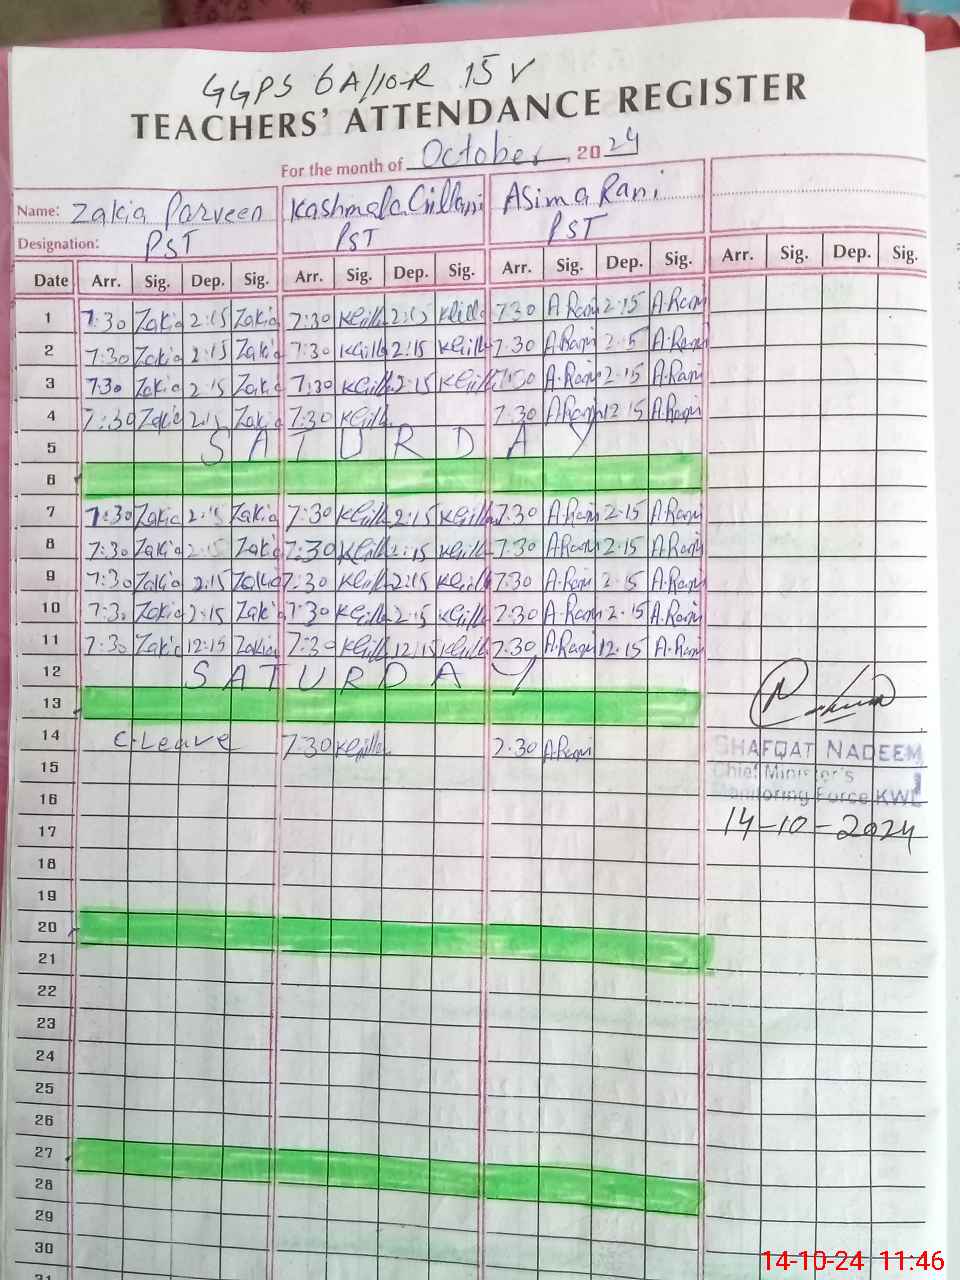 GGPS 6A/10-R 15 V
TEACHERS' ATTENDANCE REGISTER
For the month of October, 2024
Name: Zakia Parveen Kashmala Gillani Asima Rani
Designation: PST PST PST
Date Arr. Sig. Dep. Sig. Arr. Sig. Dep. Sig. Arr. Sig. Dep. Sig. Arr. Sig. Dep. Sig.
1 7:30 Zakia 2:15 Zakia 7:30 KGilla 2:15 KGilla 7:30 A.Rani 2:15 A.Rani
2 7:30 Zakia 2:15 Zakia 7:30 KGilla 2:15 KGilla 7.30 A.Rani 2-5 A.Rani
3 7:30 Zakia 2:15 Zakia 7:30 KGilla 2:15 KGilla 7:30 A.Rani 2-15 A.Rani
4 7:30 Zakia 2:15 Zakia 7:30 KGilla 7.30 A.Rani 12 15 A.Rani
5 SATURDAY
6
7 7:30 Zakia 2:15 Zakia 7:30 KGilla 2:15 KGilla 7.30 A.Rani 2-15 A.Rani
8 7:30 Zakia 2:15 Zakia 7:30 KGilla 2:15 KGilla 7.30 A.Rani 2-15 A.Rani
9 7:30 Zakia 2:15 Zakia 7:30 KGilla 2:15 KGilla 7.30 A.Rani 2-15 A.Rani
10 7:30 Zakia 2:15 Zakia 7:30 KGilla 2:15 KGilla 7.30 A.Rani 2-15 A.Rani
11 7:30 Zakia 12:15 Zakia 7:30 KGilla 12:15 KGilla 7.30 A.Rani 12.15 A.Rani
12 SATURDAY
13
14 C-Leave 7:30 KGilla 7.30 A.Rani
SHAFQAT NADEEM
15
Chief Minister's
16
Monitoring Force KWL
17
14-10-2024
18
19
20
21
22
23
24
25
26
27
28
29
30
31
14-10-24 11:46